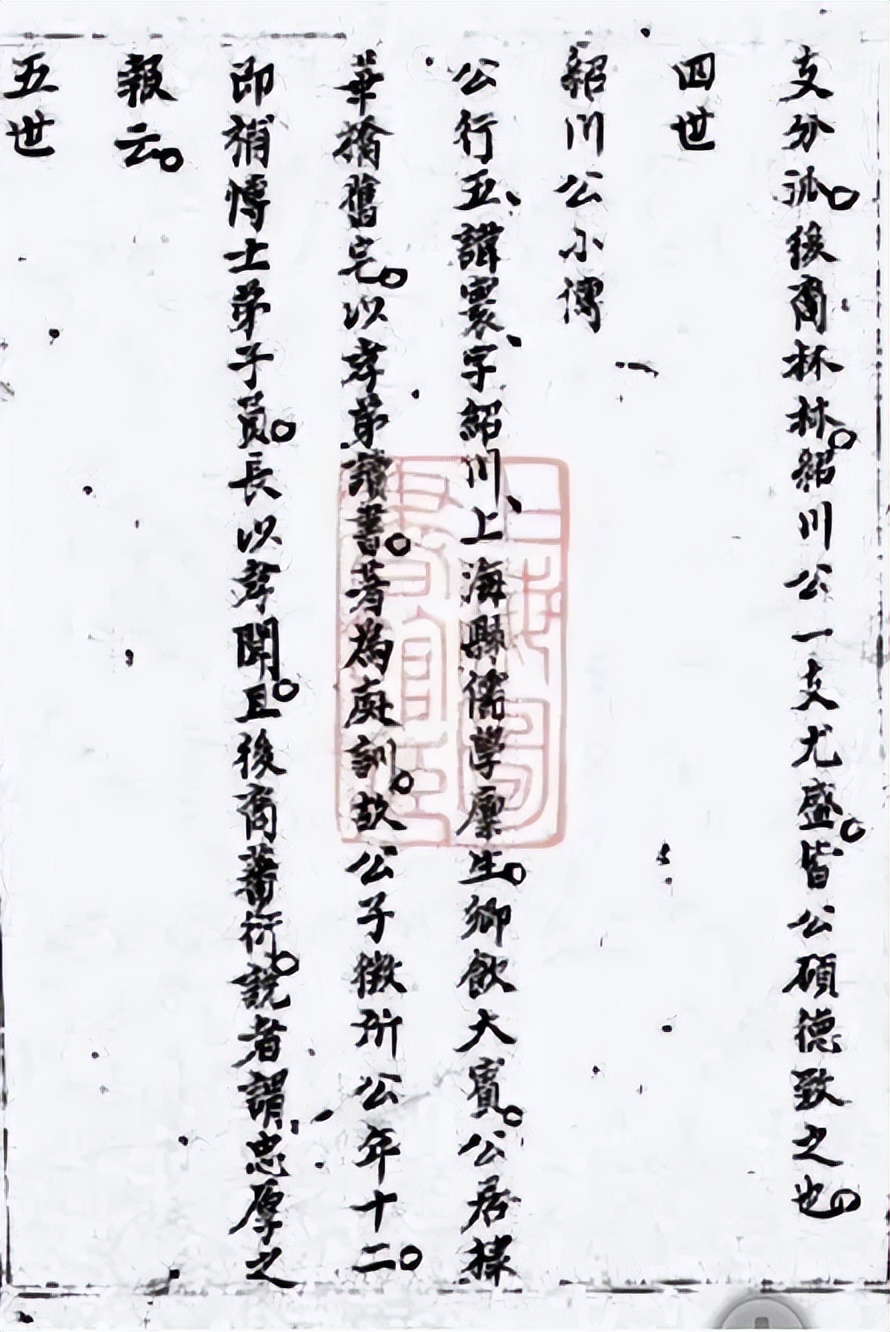 支分泒。後裔林林。紹川公一支尤盛。皆公碩德致之也。
四世
紹川公小傳
公行五、諱寰、字紹川、上海縣儒學廩生。鄉飲大賓。公居採
華橋舊宅。以孝弟讀書。著為庭訓。故公子徵所公年十二。
即補博士弟子員。長以孝聞。且後裔蕃衍。說者謂忠厚之
報云。
五世
上海圖書館藏